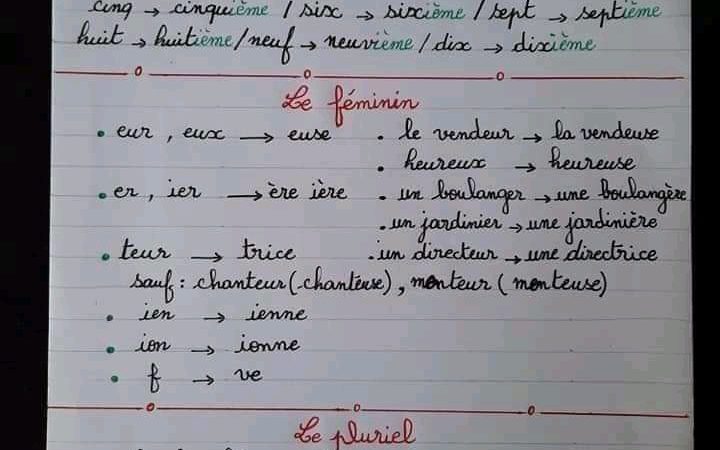 cinq → cinquième / six → sixième / sept → septième
huit → huitième / neuf → neuvième / dix → dixième
Le féminin
• eur , eux → euse • le vendeur → la vendeuse
• heureux → heureuse
• er , ier → ère ière • un boulanger → une boulangère
• un jardinier → une jardinière
• teur → trice • un directeur → une directrice
sauf : chanteur (chanteuse) , menteur ( menteuse)
• ien → ienne
• ion → ionne
• f → ve
Le pluriel